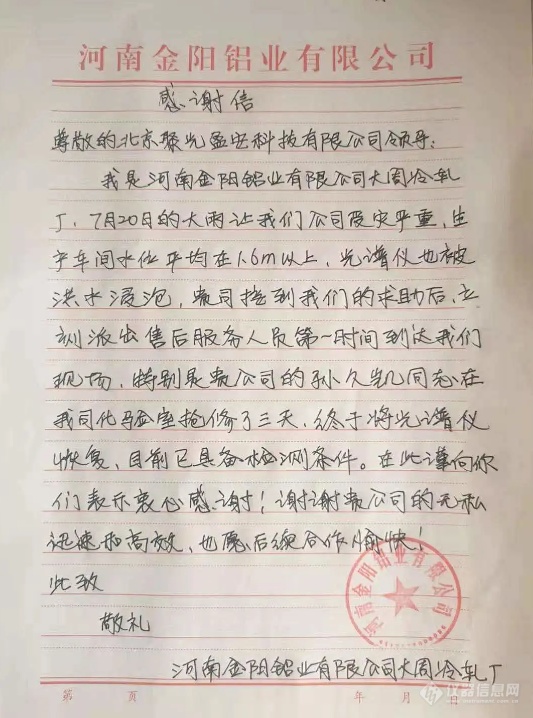 河南金阳铝业有限公司
感谢信
尊敬的北京聚光盈安科技有限公司领导:
我是河南金阳铝业有限公司大周冷轧
厂,7月20日的大雨让我们公司受灾严重,生
产车间水位平均在1.6m以上,光谱仪也被
洪水浸泡,贵司接到我们的求助后,立
刻派出售后服务人员第一时间到达我们
现场,特别是贵公司的孙久凯同志在
我司化验室抢修了三天,终于将光谱仪
恢复,目前已具备检测条件。在此谨向你
们表示衷心感谢!谢谢贵公司的无私
迅速和高效,也愿后续合作愉快!
此致
敬礼
河南金阳铝业有限公司
河南金阳铝业有限公司大周冷轧厂
第 页 年 月 日
仪器信息网
www.instrument.com.cn